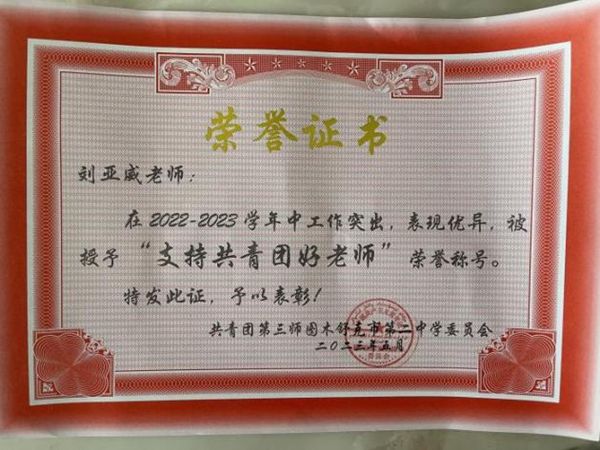 荣誉证书
刘亚威老师：
在2022-2023学年中工作突出，表现优异，被
授予“支持共青团好老师”荣誉称号。
特发此证，予以表彰！
共青团第三师图木舒克市第二中学委员会
二〇二三年五月
委员会